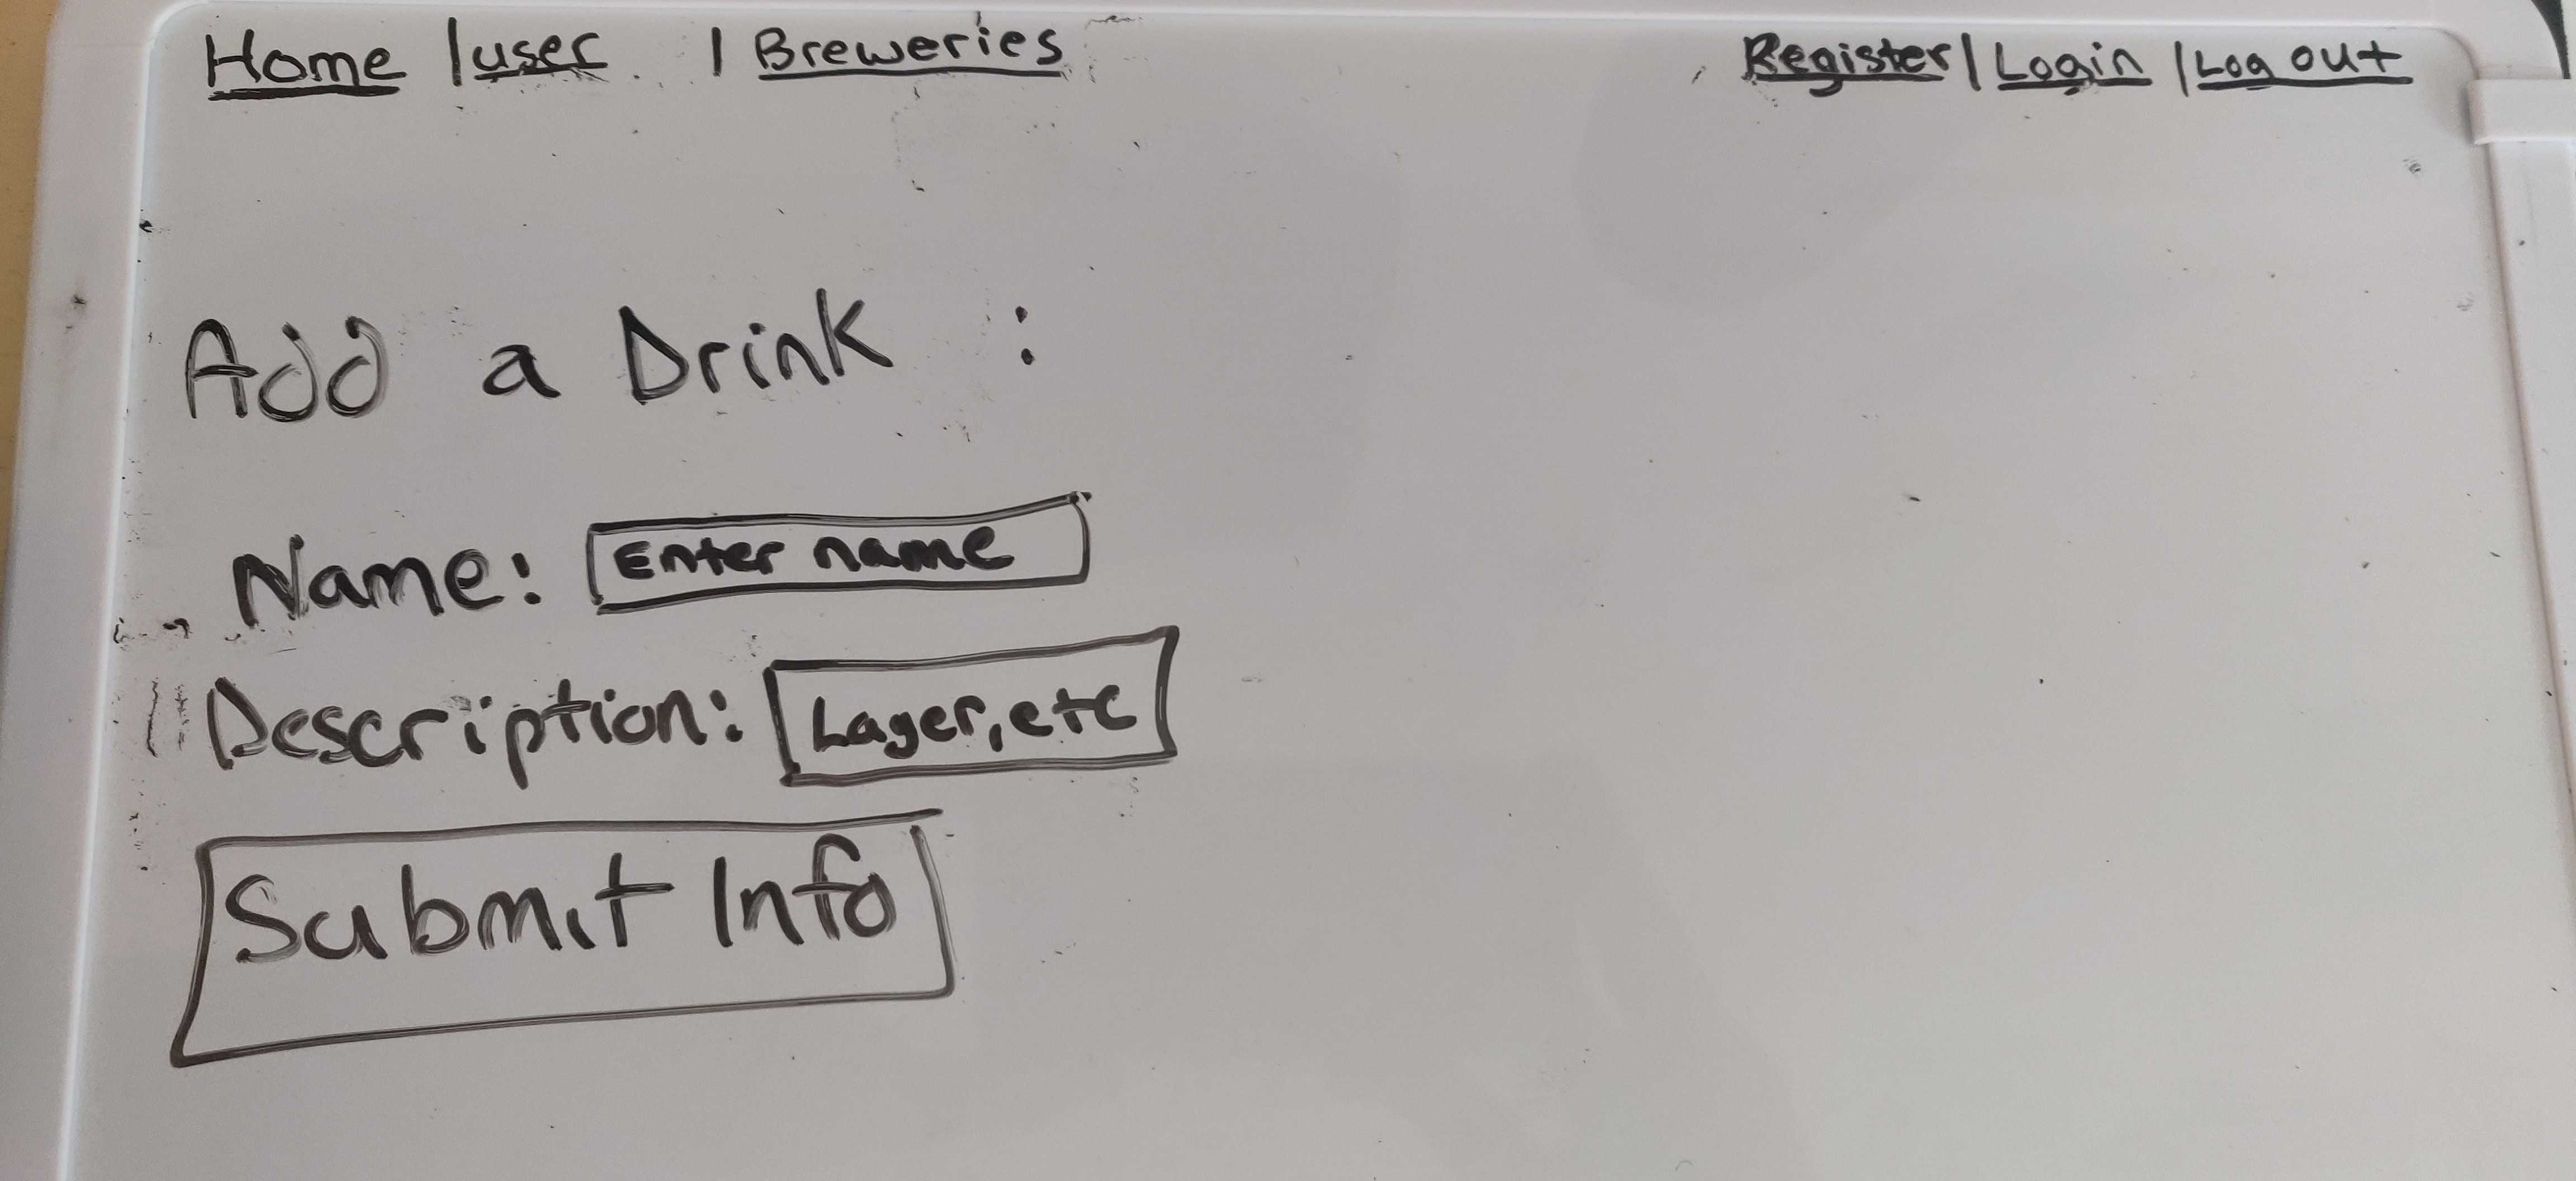 Home | user | Breweries Register | Login | Log out
Add a Drink :
Name: Enter name
Description: Lager, etc
Submit Info